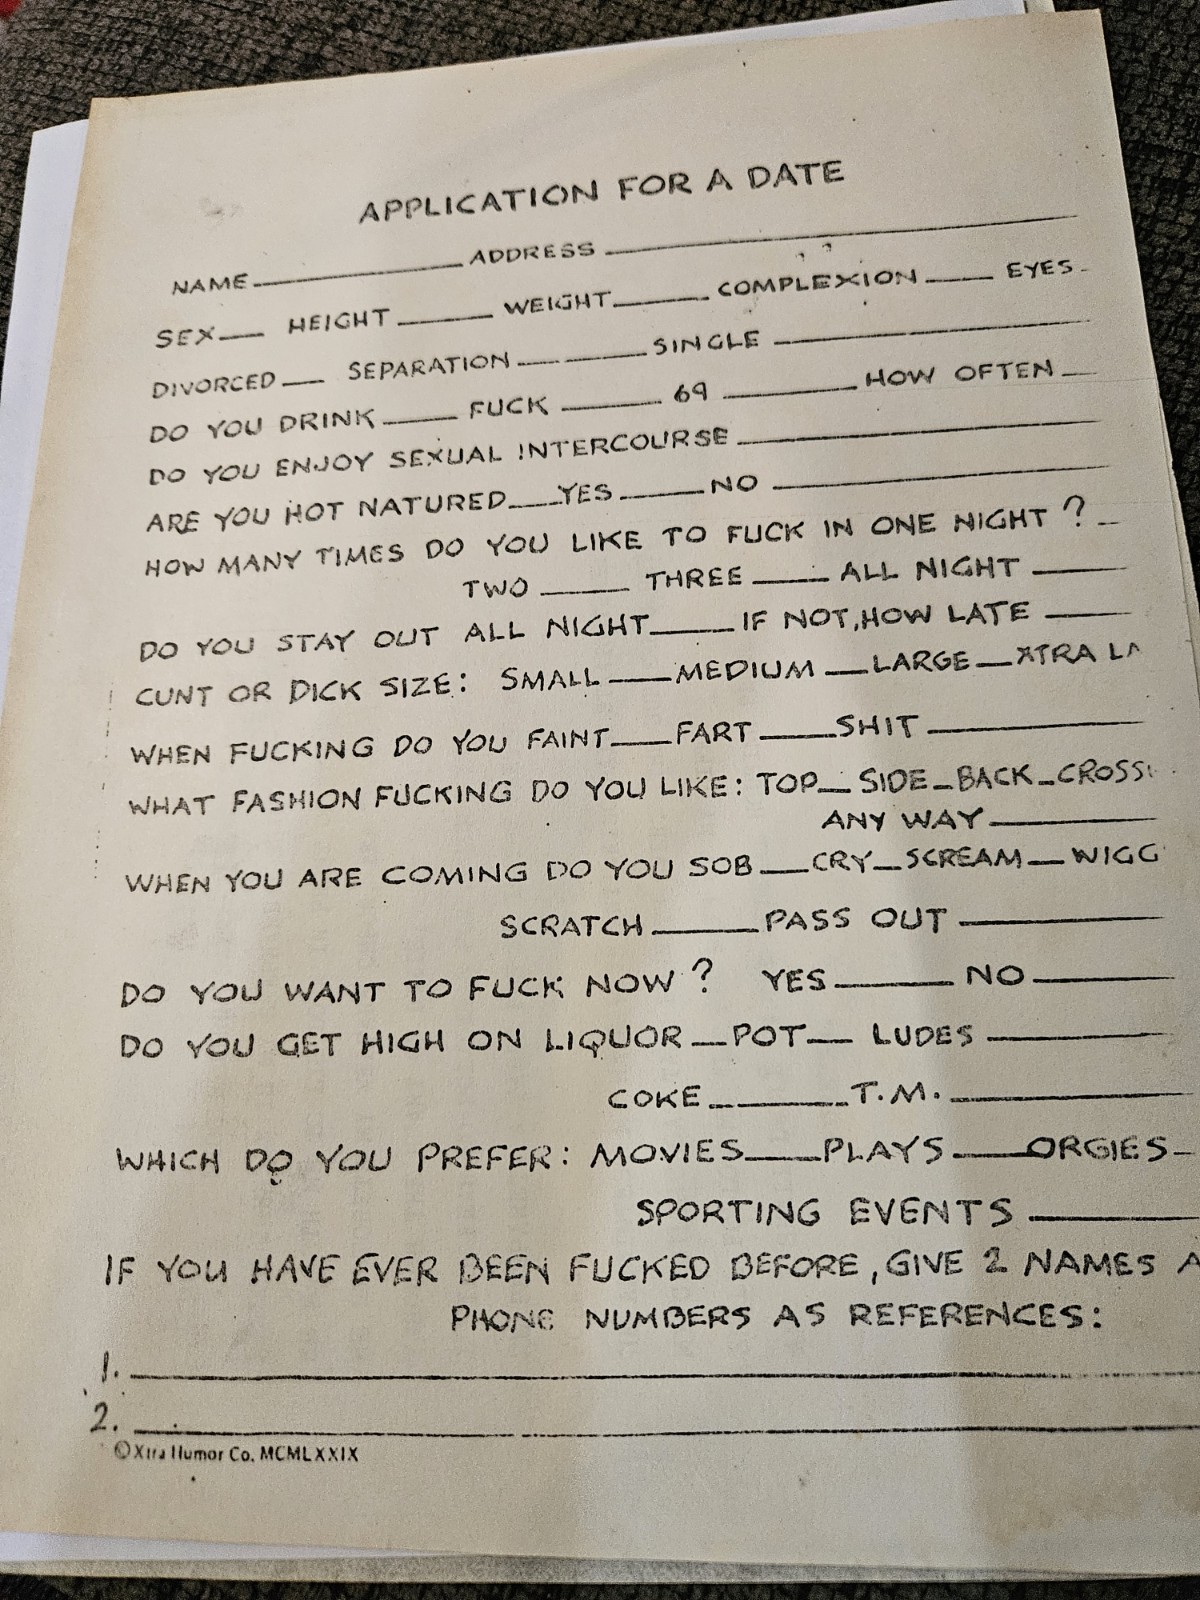 APPLICATION FOR A DATE
NAME ADDRESS
SEX HEIGHT WEIGHT COMPLEXION EYES
DIVORCED SEPARATION SINGLE
DO YOU DRINK FUCK 69 HOW OFTEN
DO YOU ENJOY SEXUAL INTERCOURSE
ARE YOU HOT NATURED YES NO
HOW MANY TIMES DO YOU LIKE TO FUCK IN ONE NIGHT?
TWO THREE ALL NIGHT
DO YOU STAY OUT ALL NIGHT IF NOT, HOW LATE
CUNT OR DICK SIZE: SMALL MEDIUM LARGE XTRA
WHEN FUCKING DO YOU FAINT FART SHIT
WHAT FASHION FUCKING DO YOU LIKE: TOP SIDE BACK
ANY WAY
WHEN YOU ARE COMING DO YOU SOB CRY SCREAM
SCRATCH PASS OUT
DO YOU WANT TO FUCK NOW? YES NO
DO YOU GET HIGH ON LIQUOR POT LUDES
COKE T.M.
WHICH DO YOU PREFER: MOVIES PLAYS ORGIES
SPORTING EVENTS
IF YOU HAVE EVER BEEN FUCKED BEFORE, GIVE 2 NAMES
PHONE NUMBERS AS REFERENCES:
1.
2.
©Xtra Humor Co. MCMLXXIX